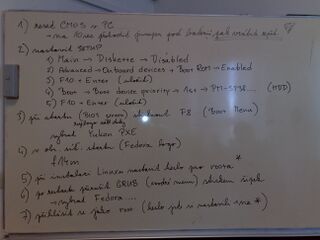 1) reset CMOS v PC
→ na 10 sec přehodit jumper pod baterií pak vrátit zpět
2) nastavit SETUP
1) Main → Diskette → Disabled
2) Advanced → Onboard devices → Boot ROM → Enabled
3) F10 + Enter (uložit)
4) Boot → Boot device priority → 1st → PM-ST38... (HDD)
5) F10 + Enter (uložit)
3) při startu (BIOS screen) stisknout F8 (Boot Menu)
vybrat Yukon PXE
4) v obr. startu (Fedora logo)
5) při instalaci Linuxu nastavit heslo pro roota *
6) po restartu GRUB (modré menu) šipek
→ vybrat Fedora ...
7) přihlásit se jako root (heslo jste si nastavili *)